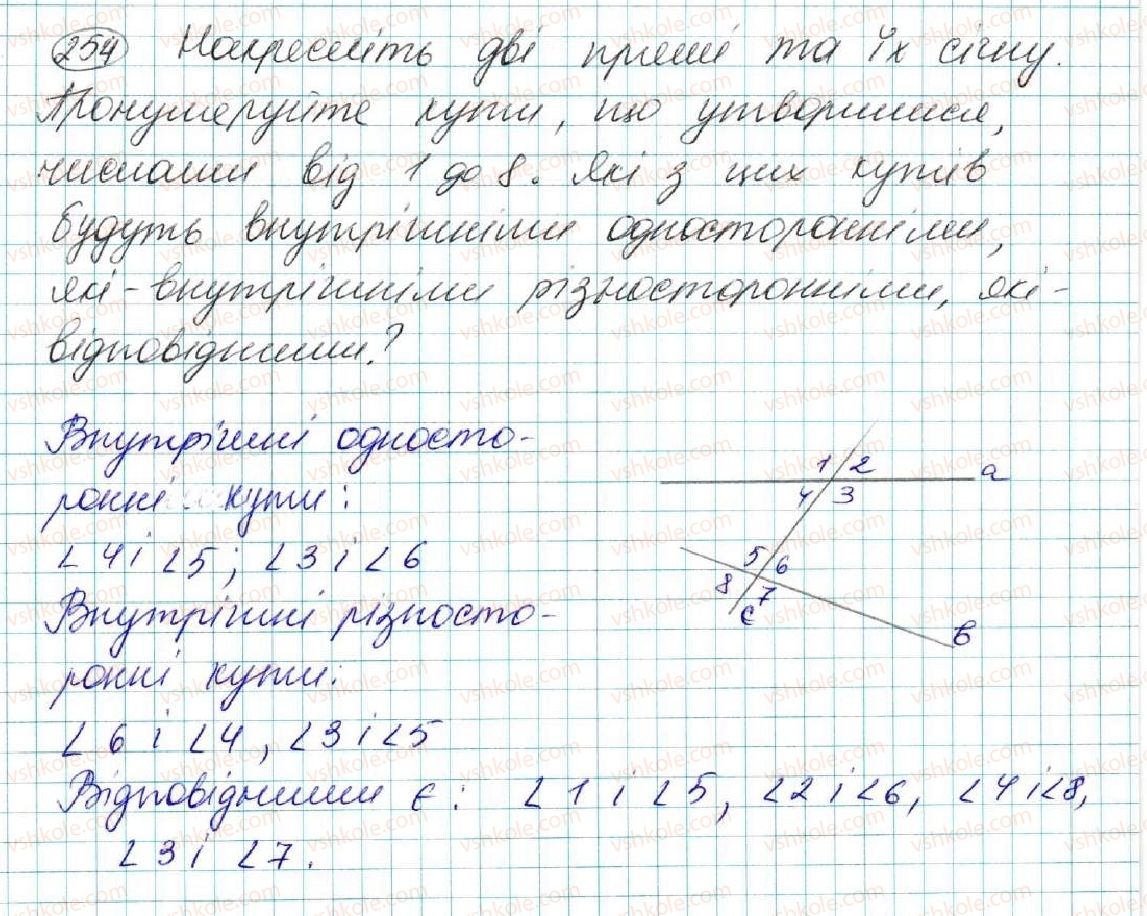 254 Накресліть дві прямі та їх січну.
Пронумеруйте кути, що утворилися,
числами від 1 до 8. Які з цих кутів
будуть внутрішніми односторонніми,
які - внутрішніми різносторонніми, які -
відповідними?
Внутрішні односто-
ронні кути:
∠4 і ∠5; ∠3 і ∠6
Внутрішні різносто-
ронні кути:
∠6 і ∠4, ∠3 і ∠5
Відповідними є: ∠1 і ∠5, ∠2 і ∠6, ∠4 і ∠8,
∠3 і ∠7.
1 2 a
4 3
5 6
8 7
c в